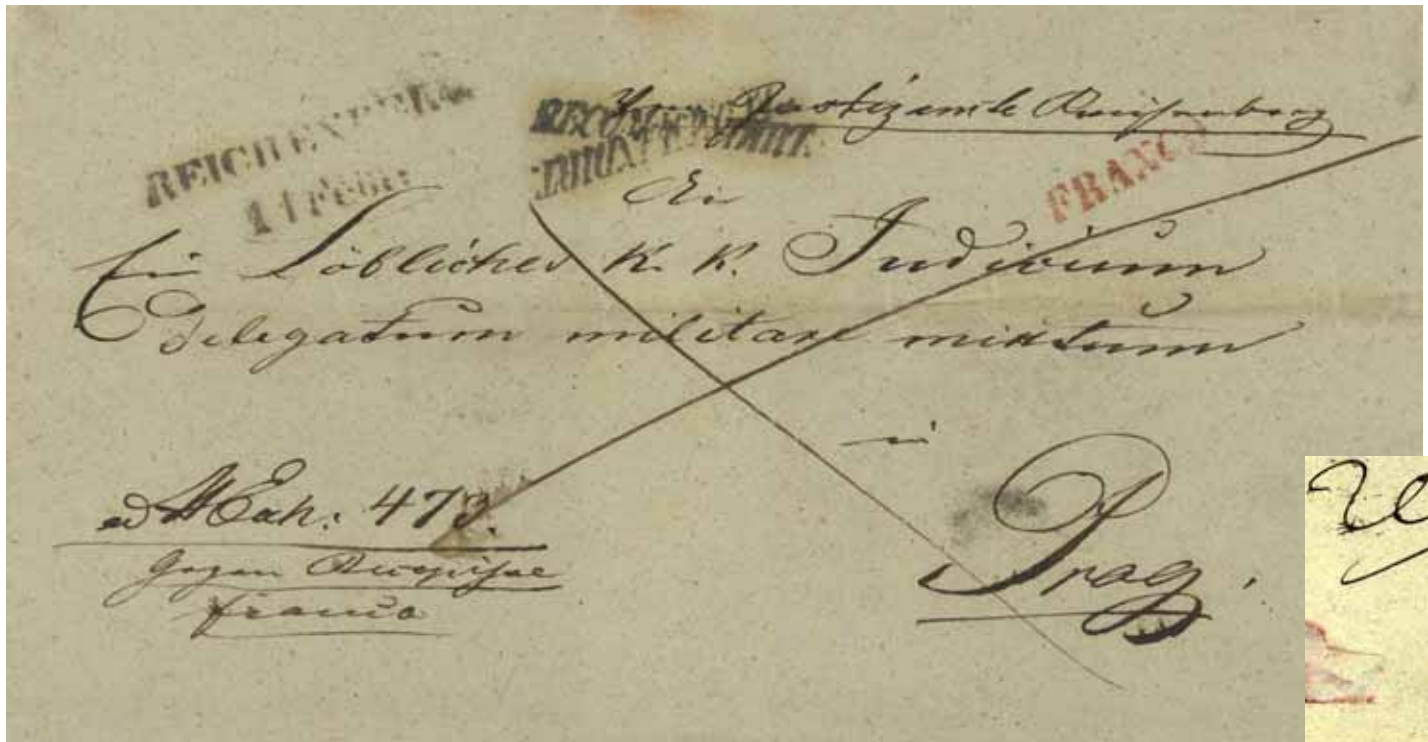 REICHENBERG
11 Febr:
Vom Justizamte Reichenberg
FRANCO
An
Ein Löbliches K. K. Judicium
delegatum militare mixtum
in
Prag.
ad NExh: 473.
Gegen Recepisse
franco